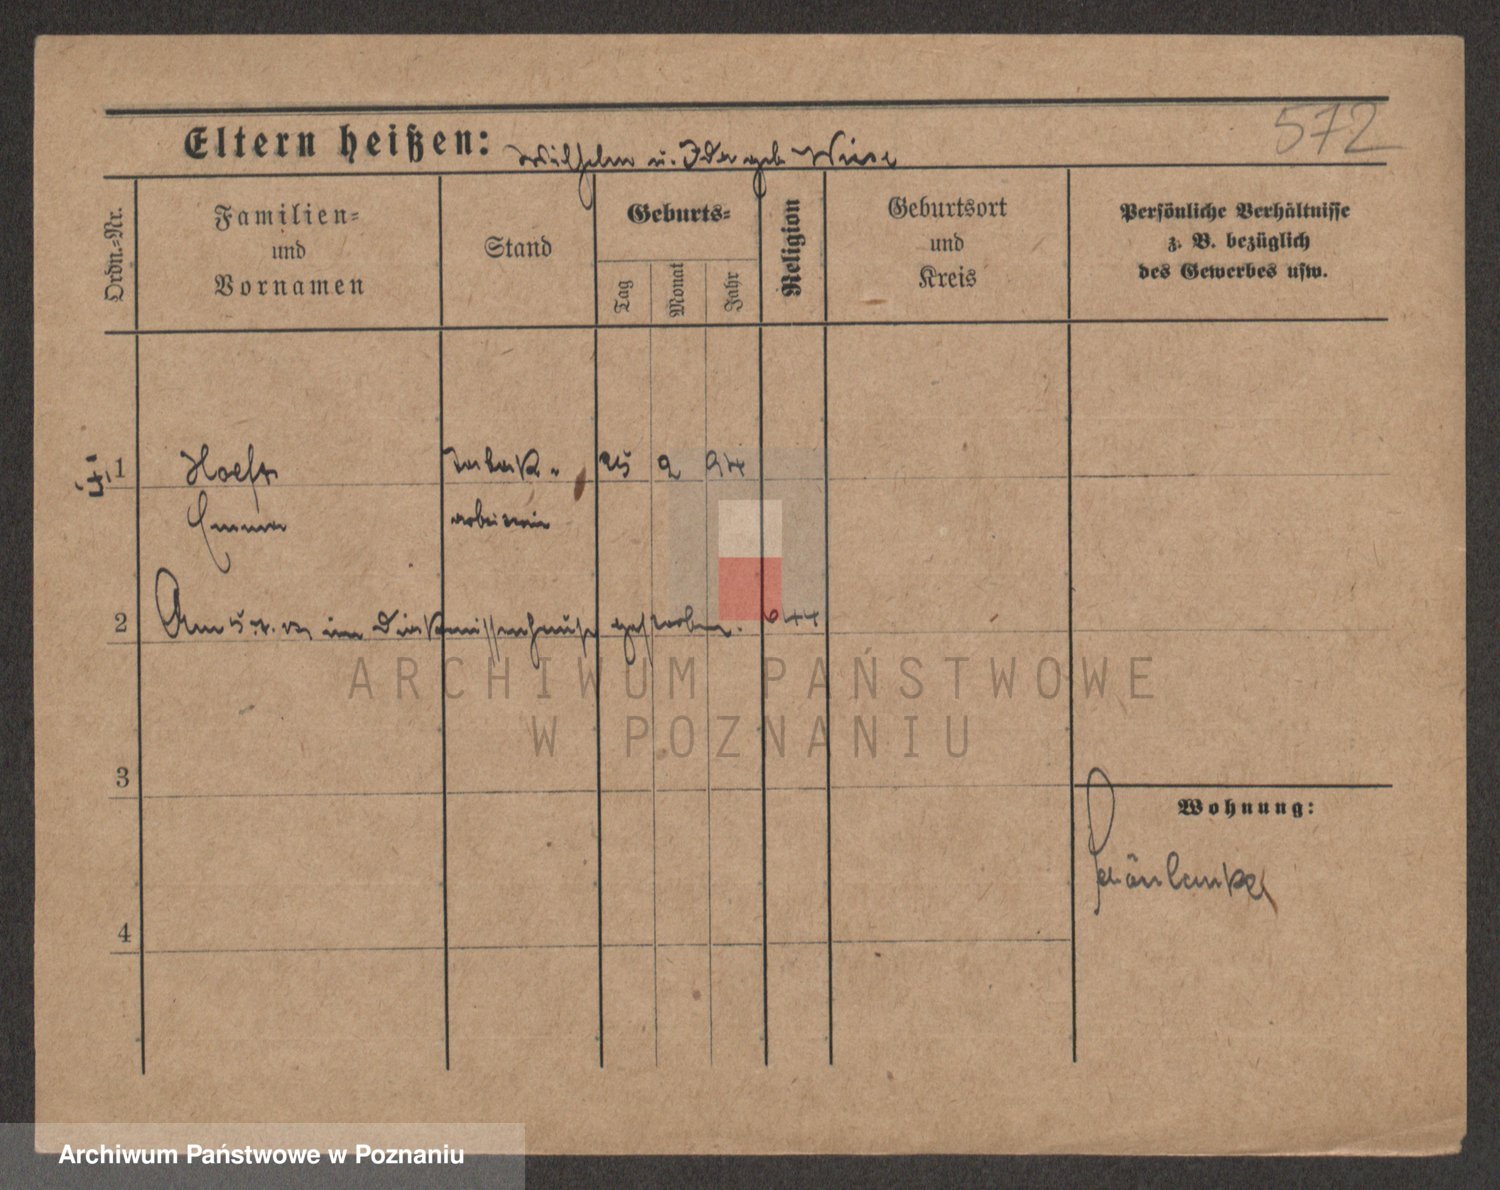 572
Eltern heißen: Wilhelm u. Ida geb. Wiese
Ordn.-Nr.
Familien-
und
Vornamen
Stand
Geburts-
Tag
Monat
Jahr
Religion
Geburtsort
und
Kreis
Persönliche Verhältnisse
z. B. bezüglich
des Gewerbes usw.
1 Hoeft Tabak- 25 2 94
Emma arbeiterin
2 Am 5. im Diakonissenhause gestorben. 644
ARCHIWUM PAŃSTWOWE
W POZNANIU
3
Wohnung:
Schönlanke
4
Archiwum Państwowe w Poznaniu